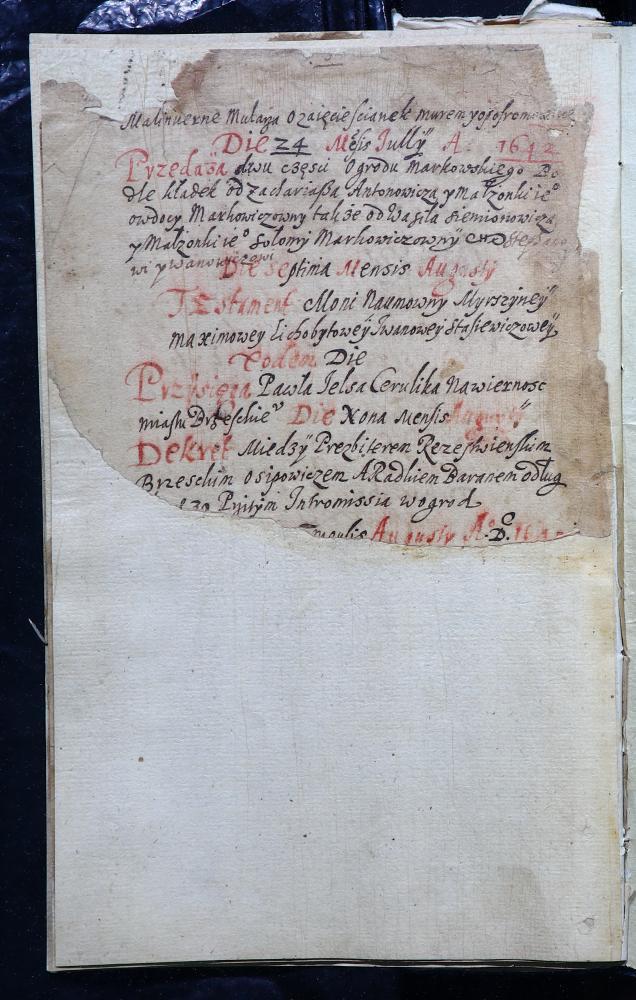 Malinuerne Mulaza o zaięcie ścianek murem
Die 24 Mēsis Jullÿ A. 1642
Przedaża dwu części Ogrodu Markowskiego
dle kładek od Zachariaßa Antonowicza y Małżonki ie°
owdocy Markowiczowny także od Wasila Siemionowicza
y Małżonki ie° Solomy Markowiczowny
wi y
Die septima Mensis Augusty
Testament Moni Naumowny Myrszyney
Maximowey Lichobytowey Iwanowey Stasiewiczowey
Eodem Die
Przysięga Pawła Jelsa Cerulika Na wiernosc
miastu Brzeskie Die Nona Mensis Augusty
Dekret Między Prezbiterem
Brzeskim Osipowiczem A Radkiem Baranem o dług
Intromissia w ogrod
Augusty A°. D.